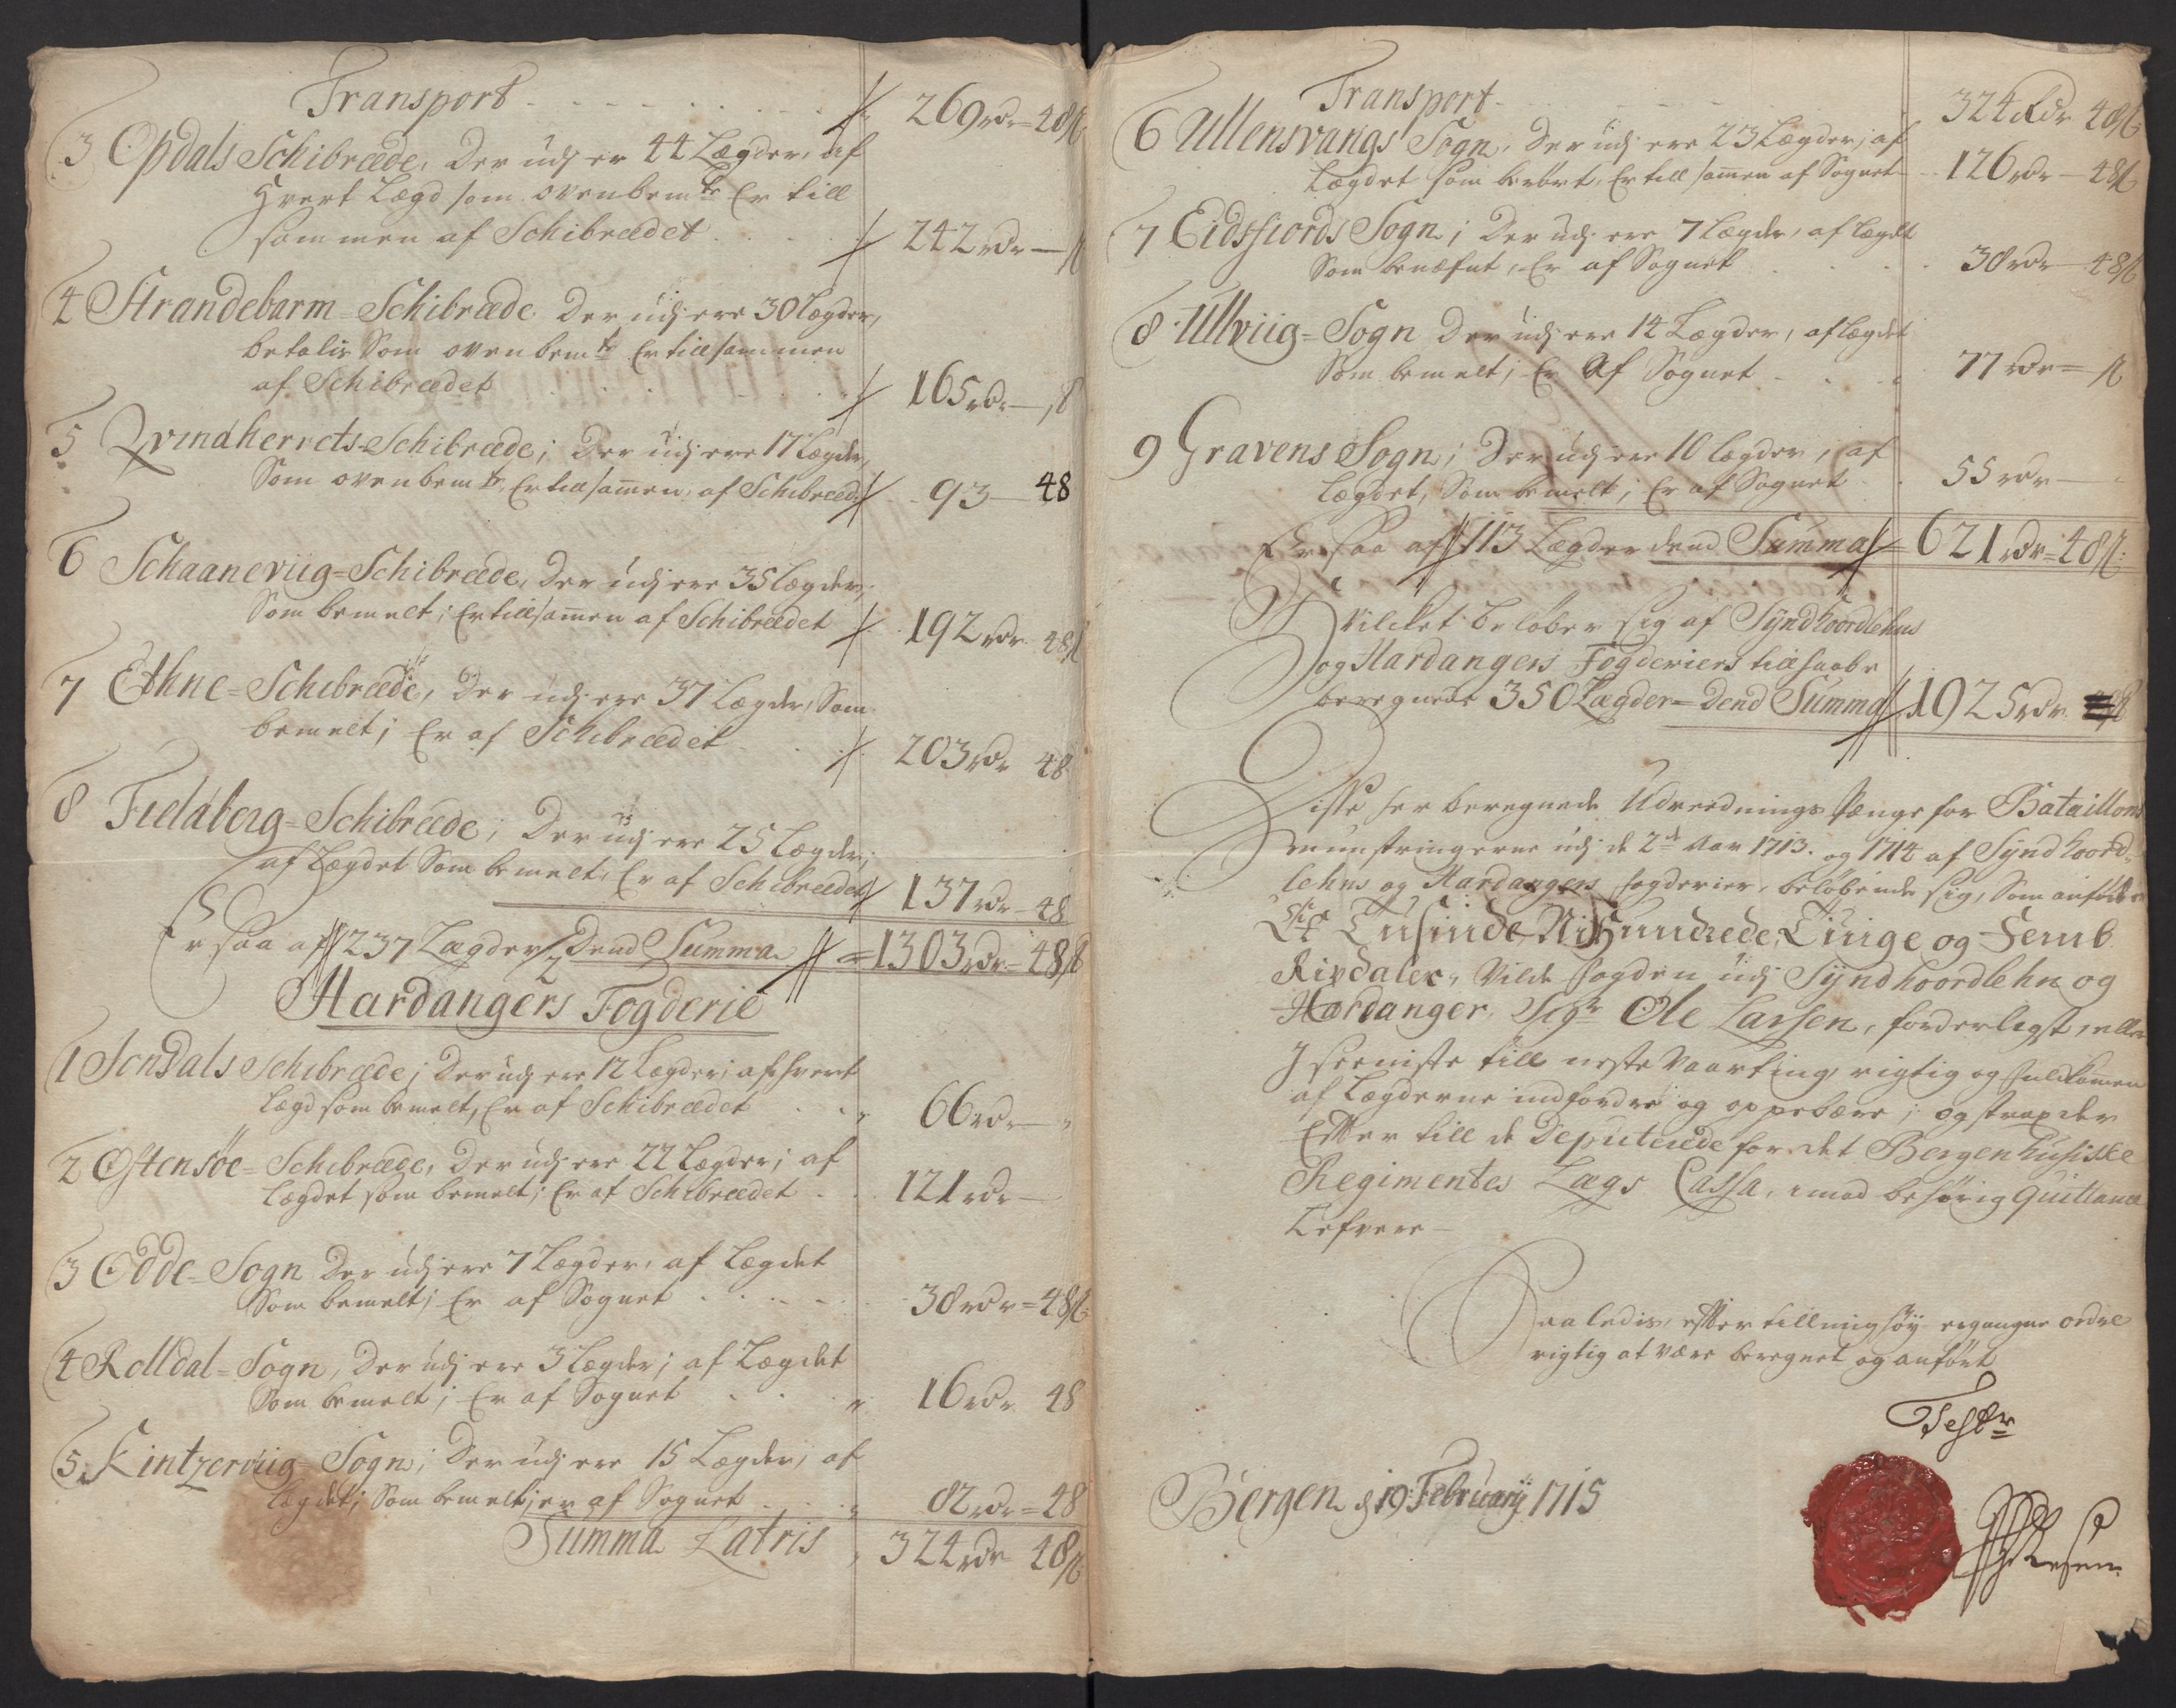 Transport - - - - 269 rdr = 48 ß
3 Opdals Schibrede, Der udj er 44 Lægder, af
Hvert Lægd som ovenbemte Er till
sammen af Schibredet . . . 242 rdr — ß
4 Strandebarm = Schibrede Der udj ere 30 Lægder,
betalis Som ovenbemte Er tillsammen
af Schibredet . . . 165 rdr — ß
5 Qvindherrets-Schibrede; Der udj ere 17 Lægder,
Som ovenbemte, Er tillsamen, af Schibred: 93 — 48
6 Schaaneviig = Schibrede, Der udj ere 35 Lægder,
Som bemelt; Er tillsamen af Schibredet 192 rdr 48 ß
7 Ethne = Schibrede, Der udj ere 37 Lægder, Som
bemelt; Er af Schibredet . . . 203 rdr 48
8 Fieldberg = Schibrede; Der udj ere 25 Lægder;
af Lægdet Som bemelt, Er af Schibredet 137 rdr — 48
Er saa af 237 Lægder Dend Summa = 1303 rdr — 48 ß
Hardangers Fogderie
1 Jondals Schibrede; Der udj ere 12 Lægder; af hvert
Lægd som bemelt, Er af Schibredet . . . 66 rdr —
2 Østensøe = Schibrede, Der udj ere 22 Lægder; af
Lægdet som bemelt; Er af Schibredet . . 121 rdr —
3 Odde = Sogn Der udj ere 7 Lægder, af Lægdet
Som bemelt; Er af Sognet . . . 38 rdr = 48 ß
4 Rolldal = Sogn, Der udj ere 3 Lægder; af Lægdet
Som bemelt; Er af Sognet . . . 16 rdr 48
5 Kintzerviig = Sogn; Der udj ere 15 Lægder, af
Lægdet; Som bemelt; er af Sognet . . 82 rdr = 48
Summa Latris 324 rdr 48 ß
Transport - - - 324 Rdr 48 ß
6 Ullensvangs Sogn, Der udj ere 23 Lægder; af
Lægdet som berørt, Er till samen af Sognet - 126 rdr — 48 ß
7 Eidsfiords Sogn; Der udj ere 7 Lægder, af Lægdt
Som benæfnt, Er af Sognet . . . 38 rdr — 48 ß
8 Ullviig = Sogn Der udj ere 14 Lægder, af Lægdet
Som bemelt; Er Af Sognet - . . 77 rdr = ß
9 Gravens Sogn; Der udj ere 10 Lægder, af
Lægdet, Som bemelt; Er af Sognet . 55 rdr —
Er saa af 113 Lægder dend Summa = 621 rdr = 48 ß:
Hvilcket beløber sig af Syndhoordlehns
og Hardangers Fogderiers tillsaabe
beregnede 350 Lægder = Dend Summa 1925 rdr
Disse her beregnede Udreednings Penge for Bataillons
Munstringerne udj de 2de Aar 1713. og 1714 af Syndhoord-
lehns og Hardangers fogderier, beløbende sig, Som anført
Et Tusinde Ni Hundrede Tiuge og Femb
Rixdaler, Vilde fogden udj Syndhoordlehn og
Hardanger, Sigr Ole Larsen, forderligst, eller
I seeniste till neste Vaarting, rigtig og fuldkomen
af Lægderne indfordre og oppebære; og strax der
Effter till de Deputerede for det Bergenhusiske
Regimentes Lægs Cassa, imod behørig Quittance
Lefvere —
Saaledis, effter till mig høy ergangne ordre
rigtig at være beregnet og anført
Bergen d 19: Februarij 1715